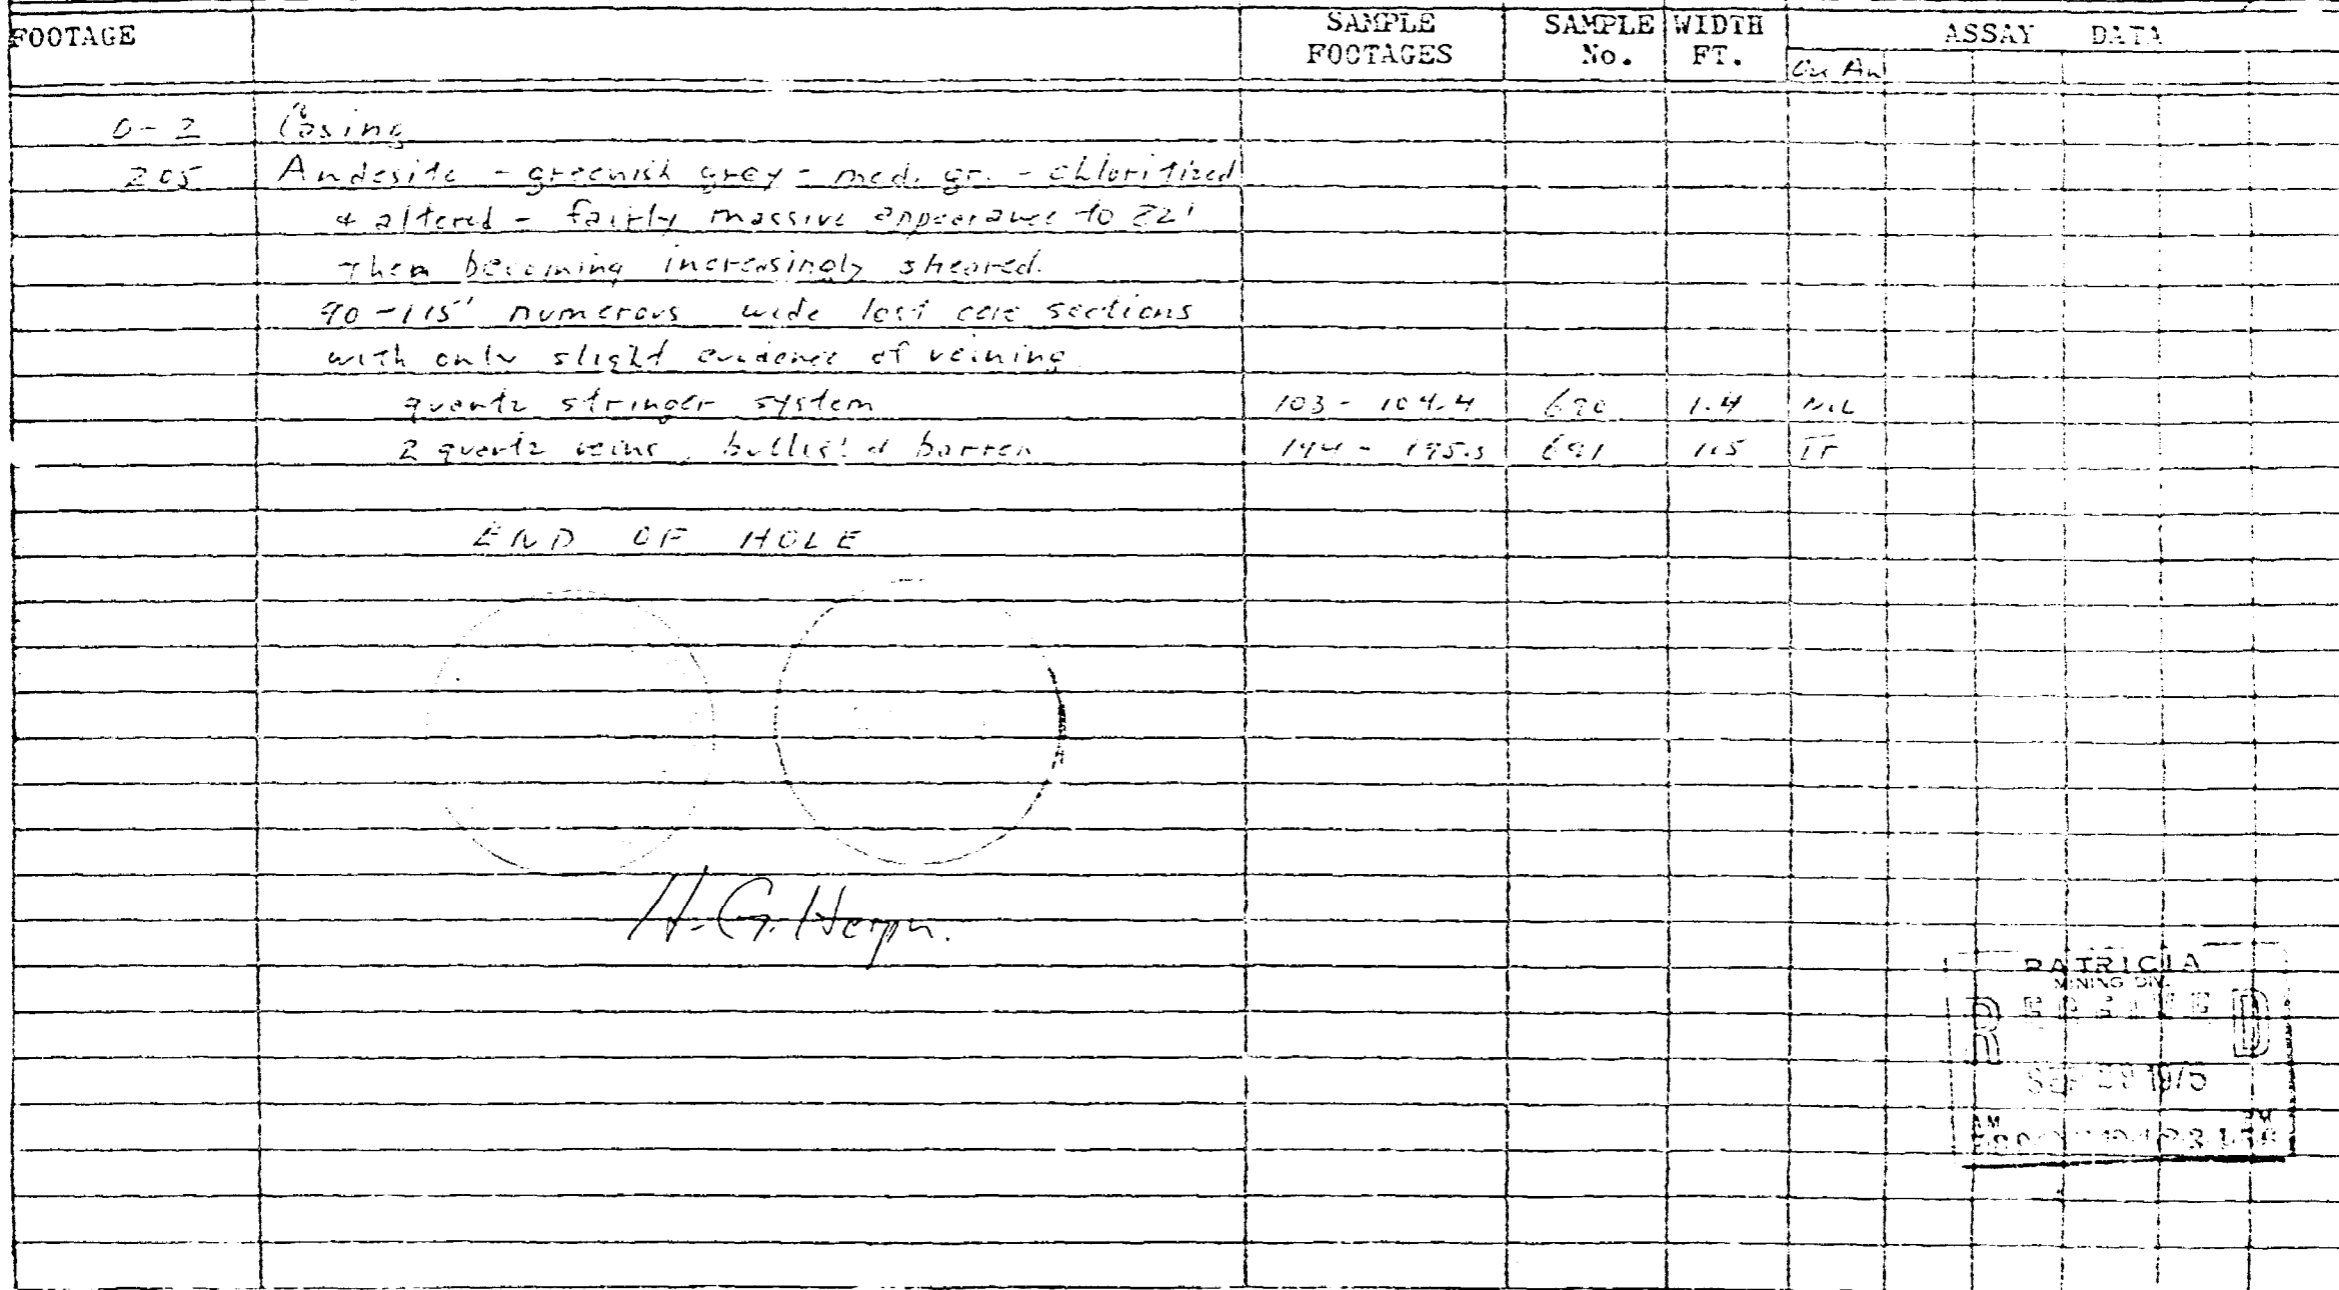 FOOTAGE SAMPLE FOOTAGES SAMPLE No. WIDTH FT. ASSAY DATA
Oz Au
0-2 Casing
205 Andesite - greenish grey - med. gr. - chloritized
& altered - fairly massive appearance to 82'
then becoming increasingly sheared.
90-115' numerous wide lost core sections
with only slight evidence of veining
quartz stringer system 103 - 104.4 690 1.4 NIL
2 quartz veins, & barren 691 1.5 Tr
END OF HOLE
H. G.
PATRICIA
MINING DIV.
RECEIVED
SEP 1975
AM PM